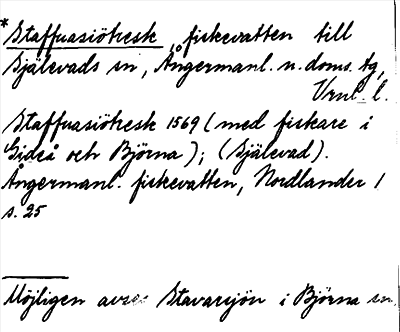 *Staffuasiötresk fiskevatten till
Själevads sn, Ångermanl. n. doms. tg,
Vrnl. l.
Staffuasiötresk 1569 (med fiskare i
Gideå och Björna); (Själevad).
Ångermanl. fiskevatten, Nordlander 1
s. 25
Möjligen avses Stavarsjön i Björna sn.